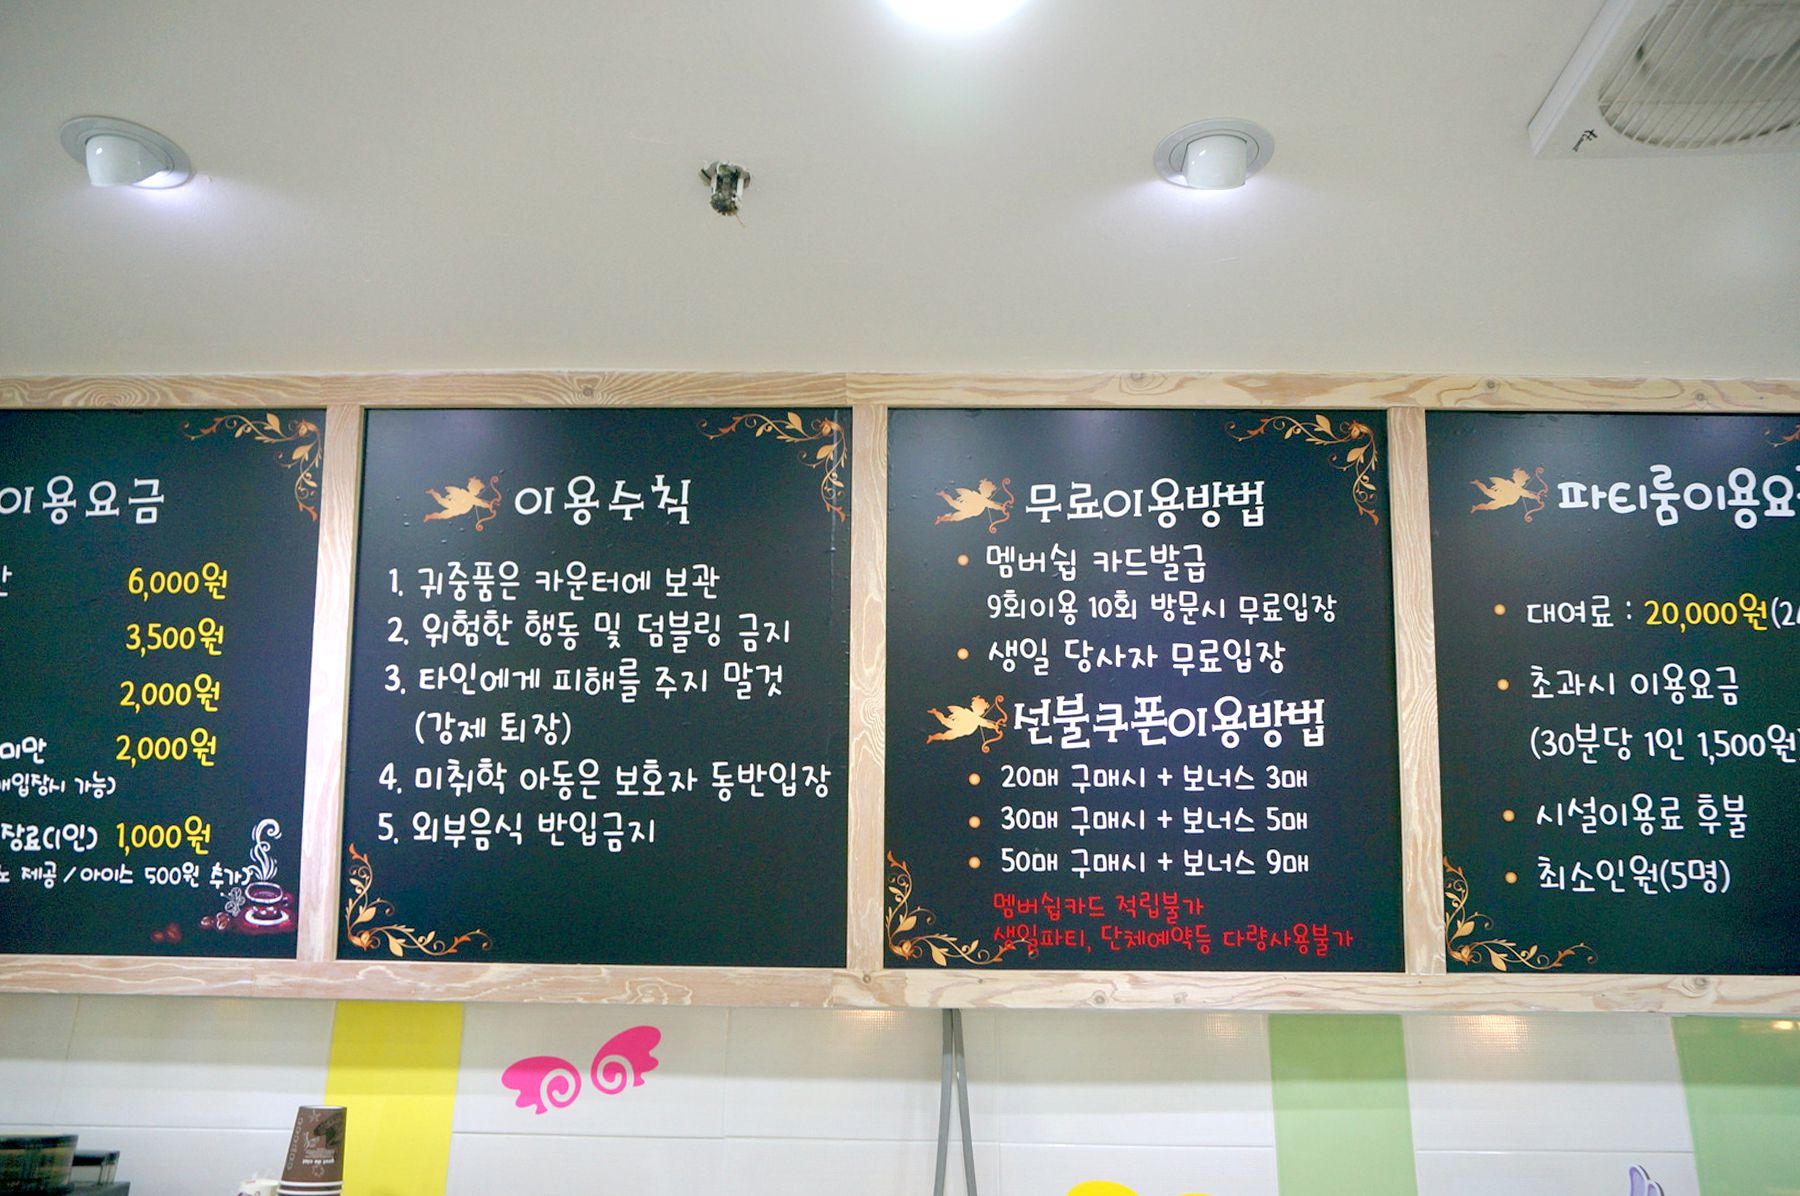 이용요금
6,000원
3,500원
2,000원
미만 2,000원
입장시 가능)
장료(1인) 1,000원
제공 / 아이스 500원 추가)
이용수칙
1. 귀중품은 카운터에 보관
2. 위험한 행동 및 덤블링 금지
3. 타인에게 피해를 주지 말것
(강제 퇴장)
4. 미취학 아동은 보호자 동반입장
5. 외부음식 반입금지
무료이용방법
• 멤버쉽 카드발급
9회이용 10회 방문시 무료입장
• 생일 당사자 무료입장
선불쿠폰이용방법
• 20매 구매시 + 보너스 3매
• 30매 구매시 + 보너스 5매
• 50매 구매시 + 보너스 9매
멤버쉽카드 적립불가
생일파티, 단체예약등 다량사용불가
파티룸이용요
• 대여료 : 20,000원(2
• 초과시 이용요금
(30분당 1인 1,500원)
• 시설이용료 후불
• 최소인원(5명)